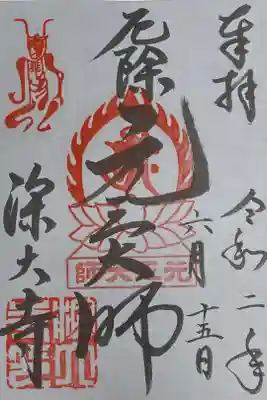 奉拝
令和二年
六月
十五日
厄除元三大師
元三大師
深大寺